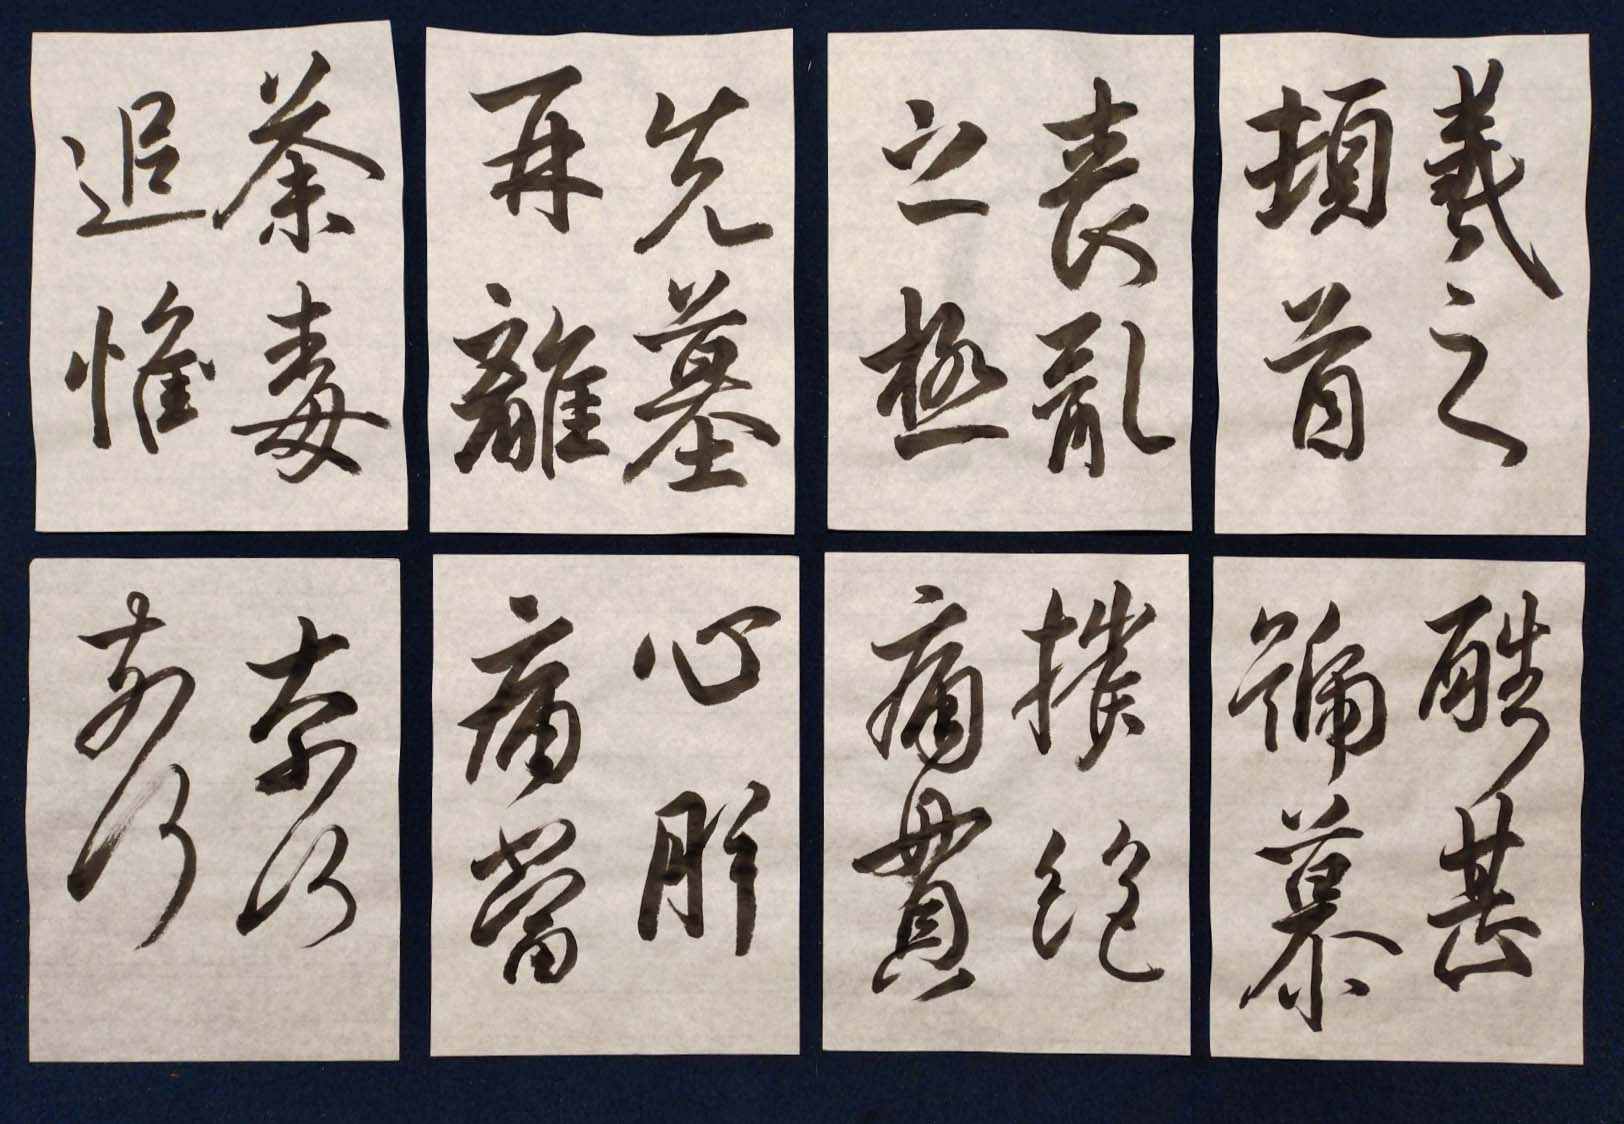 羲之
頓首
喪亂
之極
先墓
再離
荼毒
追惟
酷甚
號慕
摧絶
痛貫
心肝
痛當
奈何
奈何